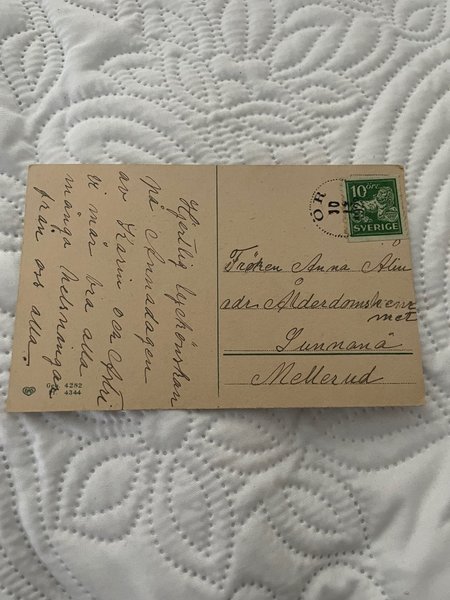 Hjertlig lyckönskan
på Annadagen
av Karin och
vi mår bra alla
många helsningar
från oss alla.
4282
4344
OR
10 ÖRE
SVERIGE
Fröken Anna Alm
adr Ålderdomshem
met
Sunnanå
Mellerud